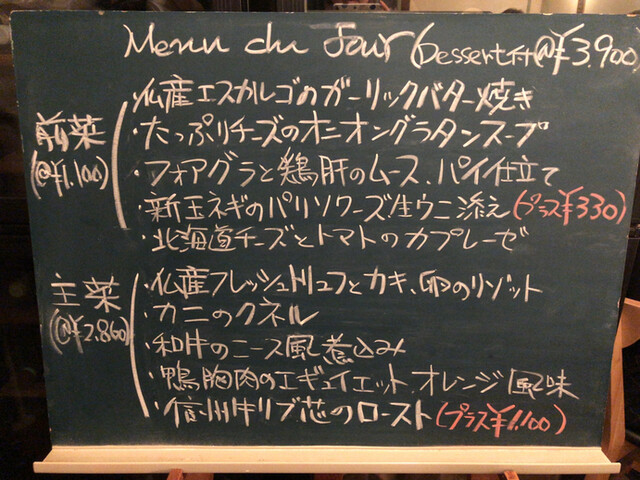 Menu du Jour (Dessert付 @¥3,900)
前菜 (@¥1,100)
・仏産エスカルゴのガーリックバター焼き
・たっぷりチーズのオニオングラタンスープ
・フォアグラと鶏肝のムース、パイ仕立て
・新玉ネギのパリソワーズ生ウニ添え(プラス¥330)
・北海道チーズとトマトのカプレーゼ
主菜 (@¥2,860)
・仏産フレッシュトリュフとカキ、卵のリゾット
・カニのクネル
・和牛のニース風煮込み
・鴨胸肉のエギュイエット、オレンジ風味
・信州牛リブ芯のロースト(プラス¥1,100)